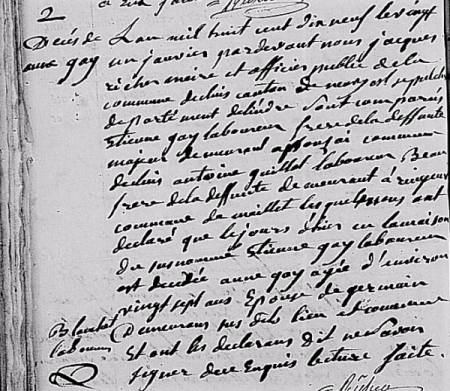 2
Décés de
anne gay
L'an mil huit cent dix neuf le vingt
un janvier pardevant nous jacques
richer maire et officier public de la
commune de cluis canton de
departement de lindre sont comparus
Etienne gay laboureur frere de la deffunte
majeur demeurant commune
de cluis antoine guillot laboureur Beau
frere de la deffunte demeurant à
commune de maillet lesquels nous ont
declaré que le jours d'hier en la maison
du susnommé Etienne gay laboureur
est decedée anne gay agée d'environ
vingt sept ans Epouse de germain
Blanchet
laboureur
Demeurans sus dits lieu et commune
Et ont les declarans dit ne savoir
signer de ce Enquis lecture faite.